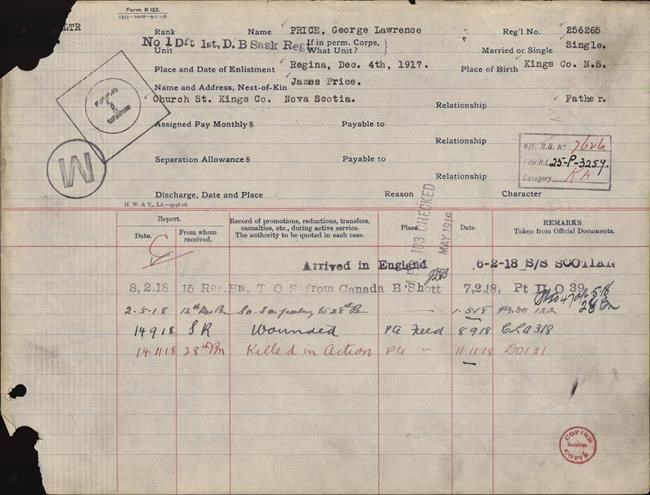 Form R 122.
LTR
Rank Name PRICE, George Lawrence Reg'l No. 256265
No 1 Dft 1st, D.B Sask Reg
Unit If in perm. Corps, What Unit? Married or Single Single.
Place and Date of Enlistment Regina, Dec. 4th, 1917. Place of Birth Kings Co. N.S.
Name and Address, Next-of-Kin James Price.
Church St. Kings Co. Nova Scotia. Relationship Father.
Assigned Pay Monthly $ Payable to
Relationship
Separation Allowance $ Payable to
Relationship
I
M
R.B. No 7626
File R.L. 25-P-3254
Category KA
Discharge, Date and Place Reason Character
H. W. & V., Ld.
103 CHECKED
MAY 1918
Report. Record of promotions, reductions, transfers, casualties, etc., during active service. The authority to be quoted in each case. Place. Date. REMARKS Taken from Official Documents.
Date. From whom received.
Arrived in England 6-2-18 S/S SCOTIAN
8,2.18. 15 Res.Bn. T O S from Canada B Shott 7,2,18, Pt II O 39
2-5-18 15th Res Bn to 28th Bn 1-5-18 122 28 Bn
14 9 18 S R Wounded Field 8 9 18 CLA 318
14-11-18 28th Bn Killed in Action — 11-11-18 DO 131
COPIED
COPIÉ